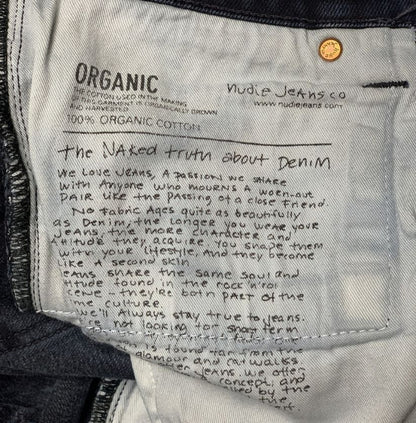 ORGANIC
THE COTTON USED IN THE MAKING
OF THIS GARMENT IS ORGANICALLY GROWN
AND HARVESTED
100% ORGANIC COTTON
Nudie Jeans co
www.nudiejeans.com
The Naked truth about Denim
We Love Jeans, A passion we share
with Anyone who mourns a worn-out
pair like the passing of a close friend.
No fabric Ages quite as beautifully
as Denim, the Longer you wear your
Jeans, the more character and
Attitude they acquire. You shape them
with your lifestyle, and they become
like a second skin
eans share the same soul and
titude found in the rock'n'roll
cene – they're both part of the
me culture.
we'll Always stay true to Jeans.
re not looking for short term
found far from the
glamour and catwalks
Jeans. We offer
concept, and
by the
the